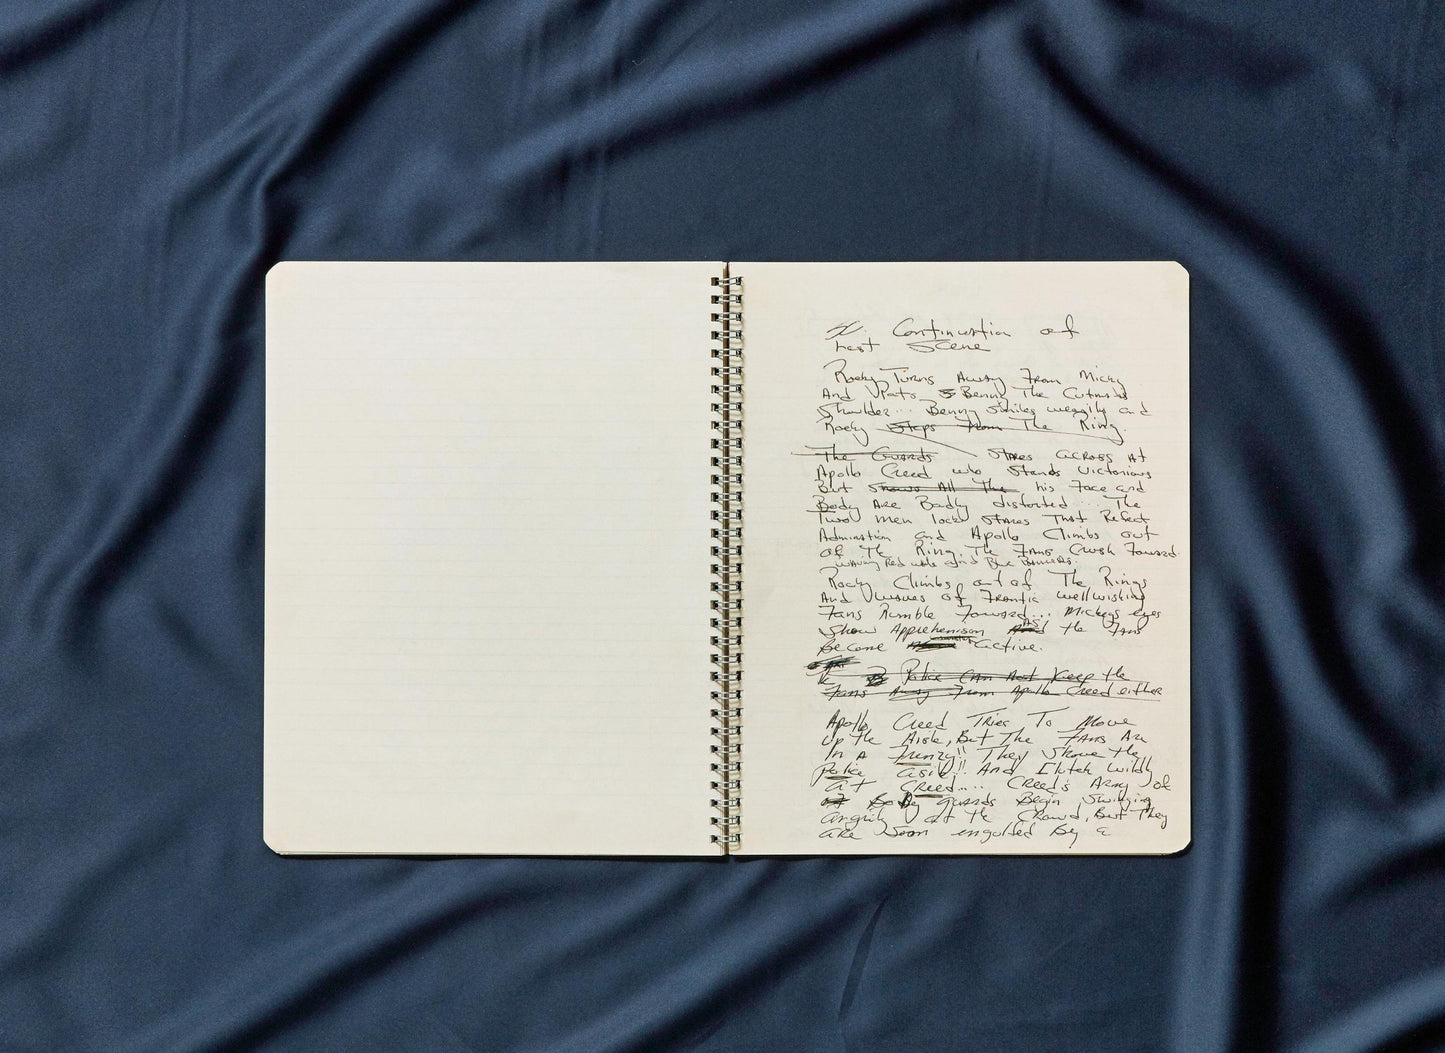 Continuation of
Last Scene
Rocky Turns Away From Micky
And Pats Benny The Cutman's
Shoulder... Benny smiles wearily and
Rocky Steps From The Ring.
The Guards stares across at
Apollo Creed who stands victorious
But Shows All The his Face and
Body Are Badly distorted... The
Two men lock stares That Reflect
Admiration and Apollo Climbs out
of The Ring. The Fans Crush Forward
waving Red white and Blue Banners.
Rocky Climbs out of The Rings
And waves of Frantic wellwishing
Fans Rumble Forward... Mickeys eyes
Show Apprehension As the Fans
Become active.
Police Can Not Keep the
Fans Away From Apollo Creed either
Apollo Creed Tries To Move
Up the Aisle, But The Fans Are
In A Frenzy!! They Shove the
Police aside!! And Clutch wildly
at Creed.... Creed's Army of
Body guards Begin Swinging
angrily at the Crowd, But They
are Soon engulfed By a